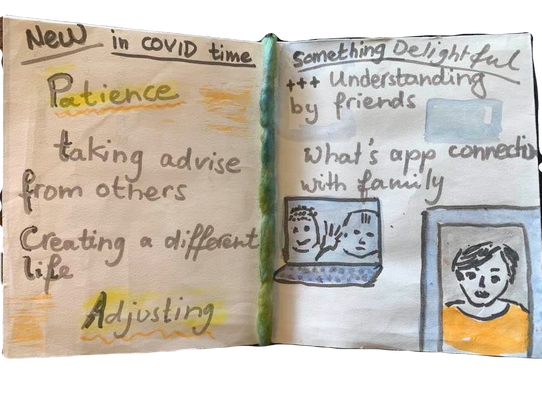 New in COVID time
Patience
taking advise
from others
Creating a different
life
Adjusting
Something Delightful
+++ Understanding
by friends
What's app connection
with family